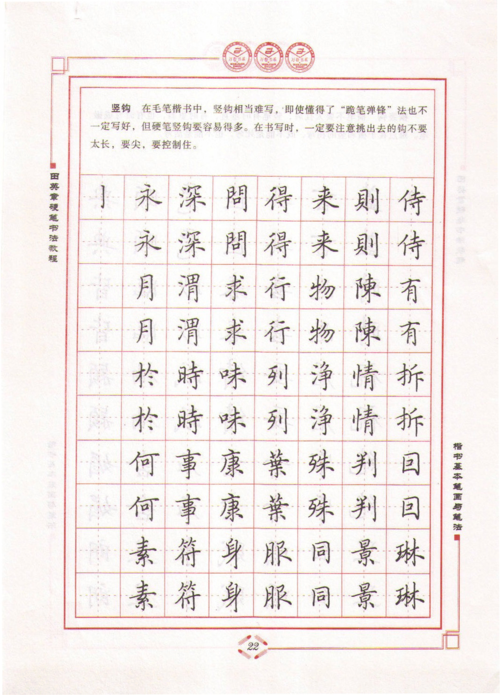 竖钩　在毛笔楷书中，竖钩相当难写，即使懂得了“跪笔弹锋”法也不
一定写好，但硬笔竖钩要容易得多。在书写时，一定要注意挑出去的钩不要
太长，要尖，要控制住。
田英章硬笔书法教程
亅永深問得来則侍
永深問得来則侍
月渭求行物陳有
月渭求行物陳有
於時味列净情拆
於時味列净情拆
何事康葉殊判回
何事康葉殊判回
素符身服同景琳
素符身服同景琳
楷书基本笔画与笔法
22